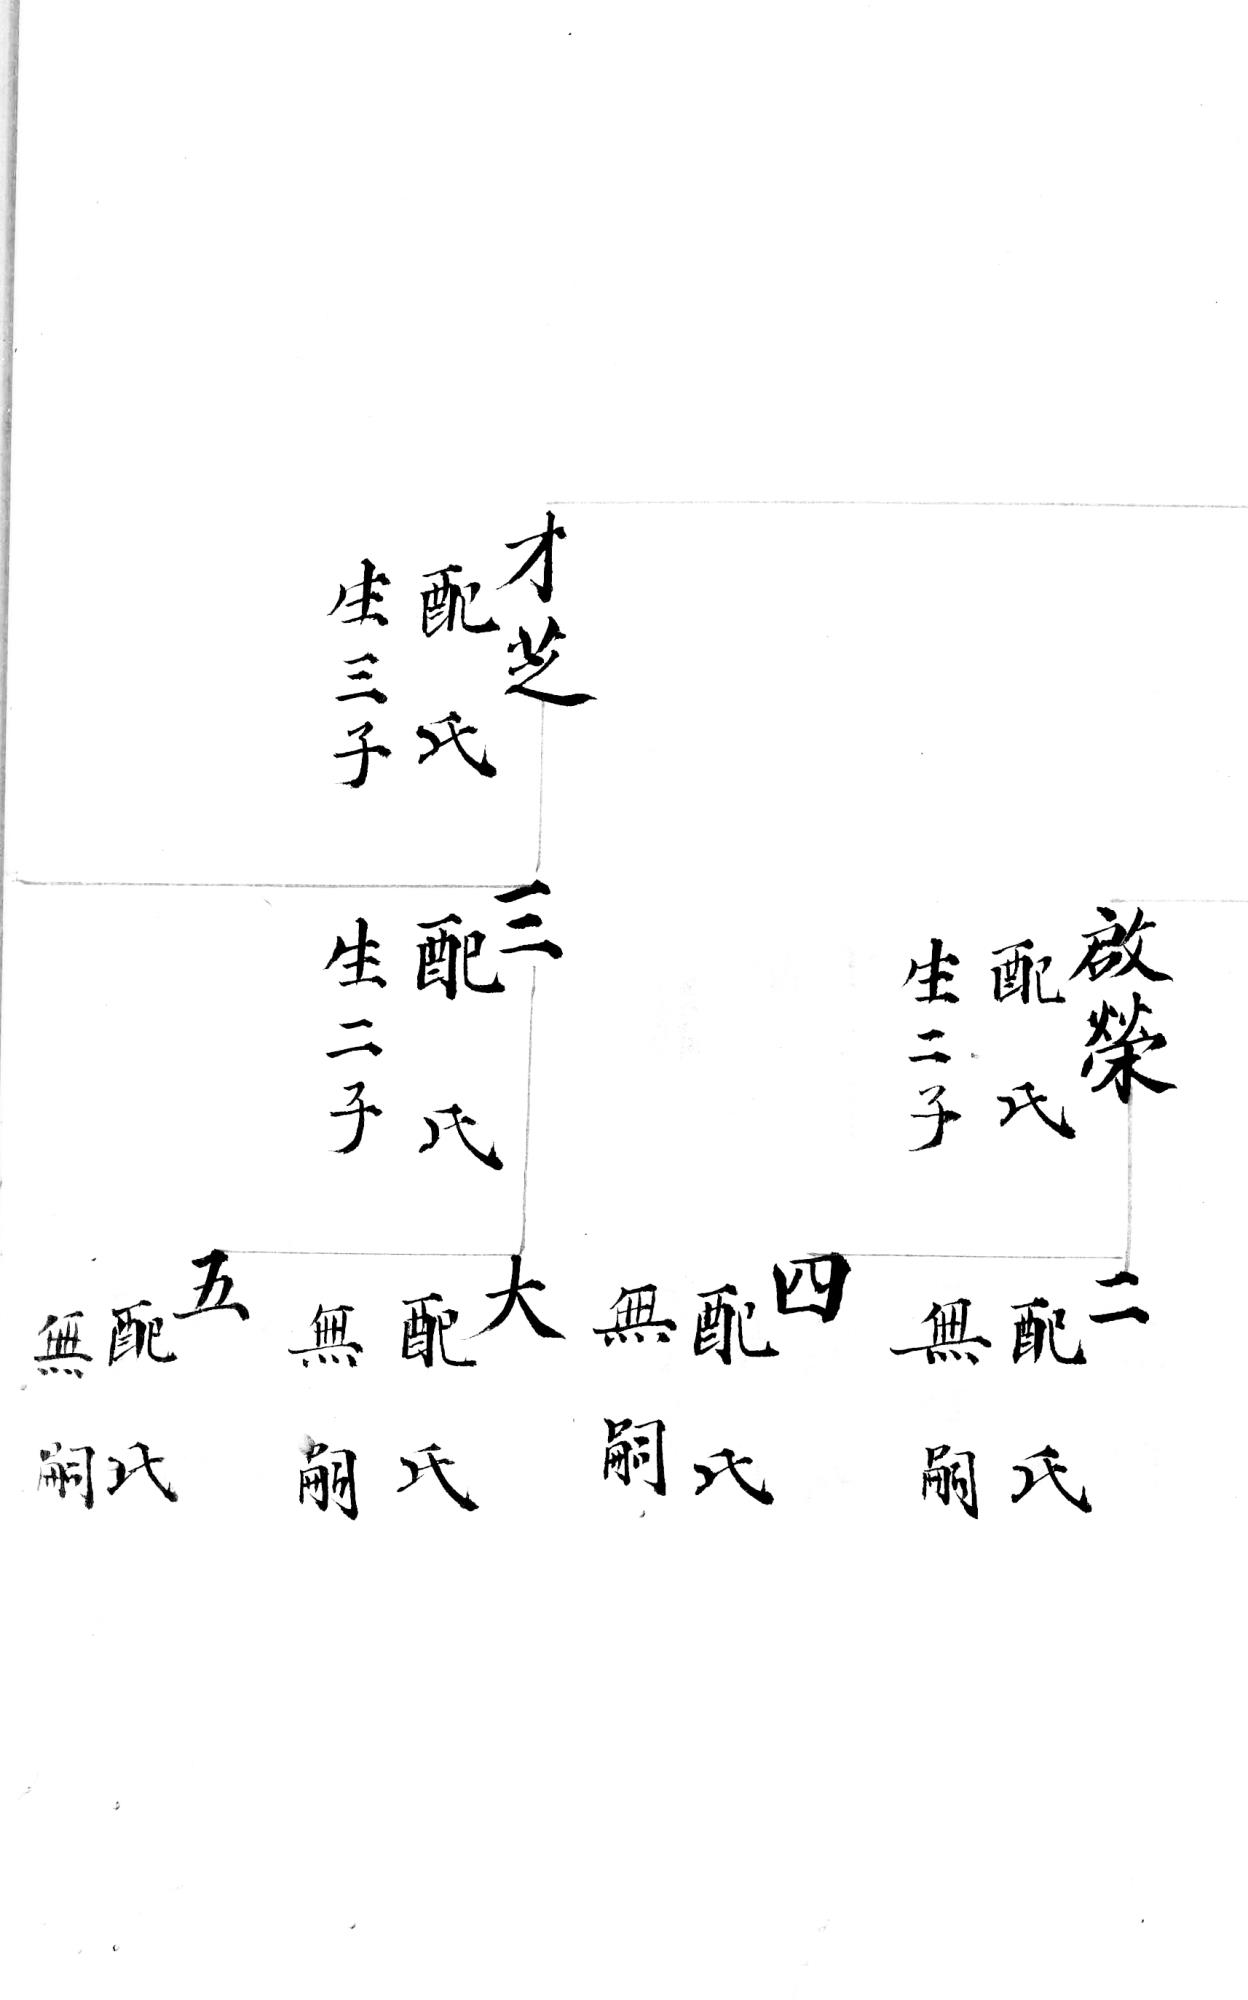 才芝
配 氏
生三子
啟榮
配 氏
生二子
三
配 氏
生二子
二
配 氏
無嗣
四
配 氏
無嗣
大
配 氏
無嗣
五
配 氏
無嗣